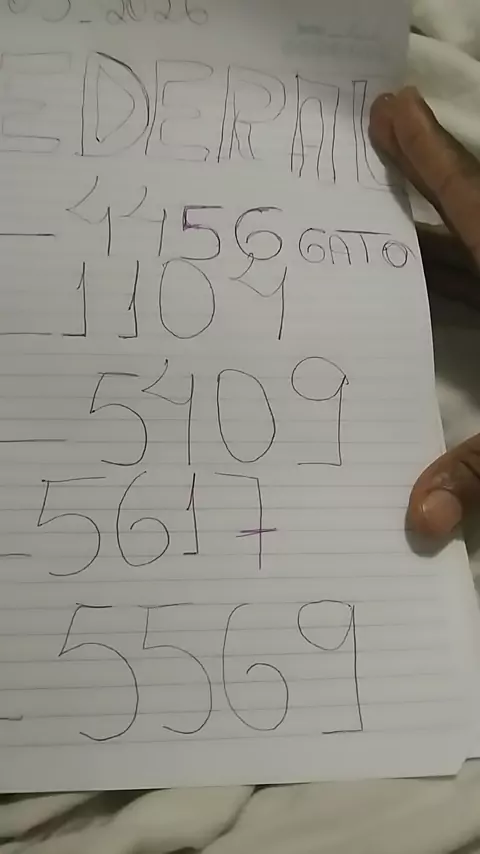 05_2026
EDERAL
4456 GATO
1104
5409
5617
5569